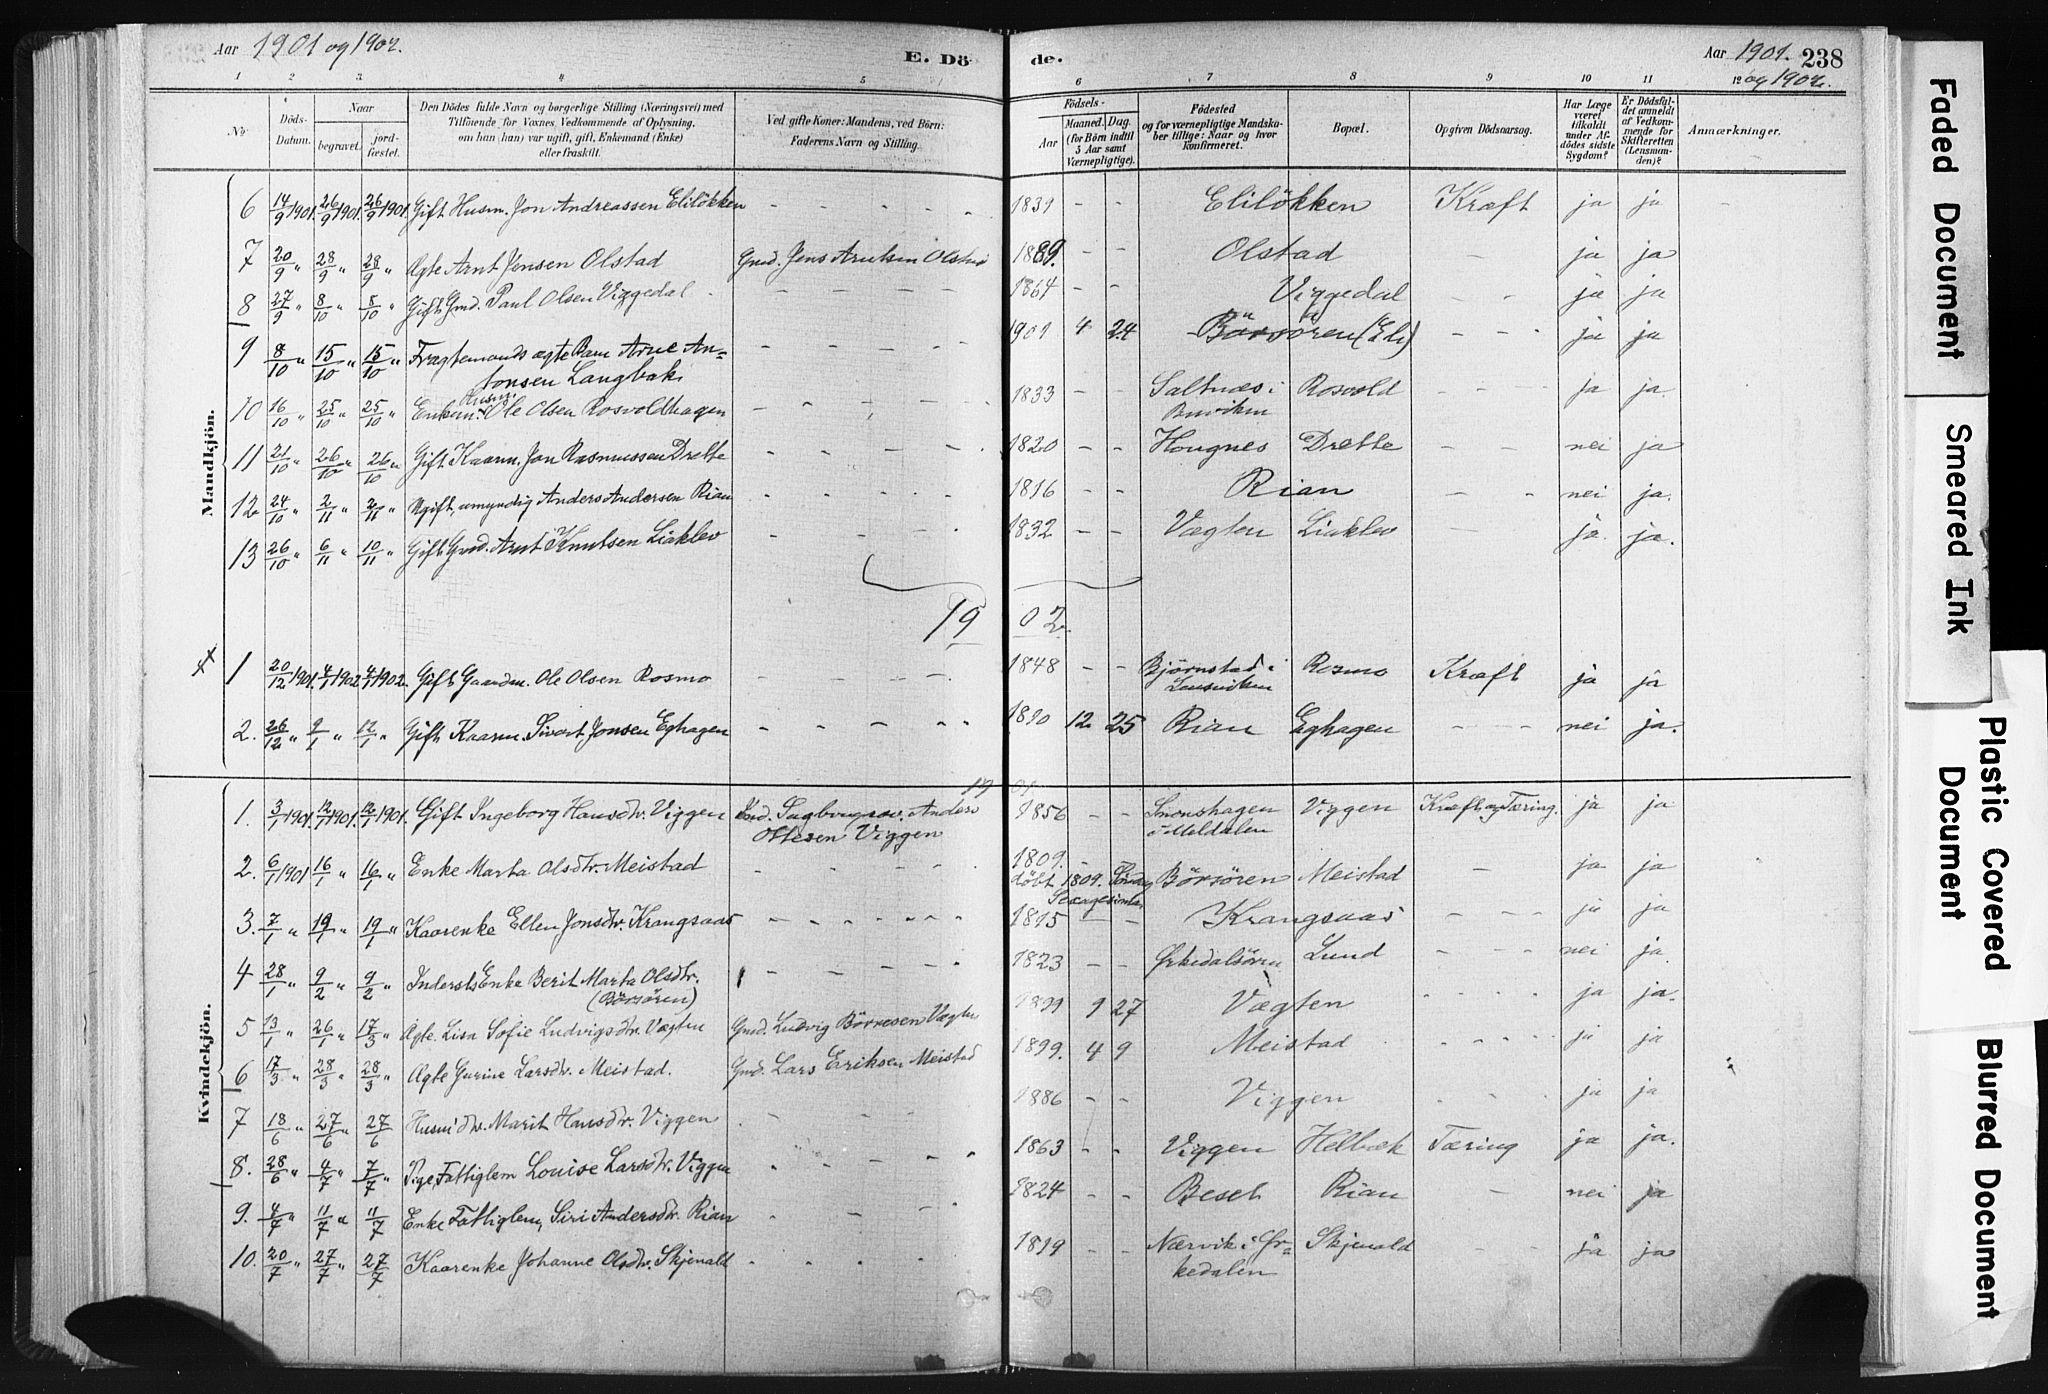 Aar 1901 og 1902.
E. Dö de.
Aar 1901. 238
og 1902.
1 2 3 4 5 6 7 8 9 10 11 12
No.
Döds-Datum.
Naar
begravet.
jordfæstet.
Den Dödes fulde Navn og borgerlige Stilling (Næringsvei) med
Tilföiende for Voxnes Vedkommende af Oplysning,
om han (hun) var ugift, gift, Enkemand (Enke)
eller fraskilt.
Ved gifte Koner: Mandens, ved Börn:
Faderens Navn og Stilling.
Födsels-
Aar
Maaned. Dag.
(for Börn indtil
5 Aar samt
Værnepligtige).
Födested
og for værnepligtige Mandska-
ber tillige: Naar og hvor
konfirmeret.
Bopæl.
Opgiven Dödsaarsag.
Har Læge
været
tilkaldt
under Af-
dödes sidste
Sygdom?
Er Dödsfal-
det anmeldt
af Vedkom-
mende for
Skifteretten
(Lensman-
den)?
Anmærkninger.
Mandkjön.
6 14/9 1901. 26/9 1901. 26/9 1901. Gift Husm. Jon Andreassen Eliløkken - - - - - 1831 - - Eliløkken Kræft ja ja -
7 20/9 " 28/9 " 28/9 " Ægte Arnt Jensen Olstad Gmd. Jens Arntsen Olstad 1889. - - Olstad - ja ja
8 27/9 " 8/10 " 8/10 " Gift Gmd. Paul Olsen Viggedal - - - - - 1864 - - Viggedal - - ja ja
9 8/10 " 15/10 " 15/10 " Fragtemands ægte Barn Arne An-
tonsen Langbak - - - - - 1901 4 24 Börsören (Eli) - - - ja ja
10 16/10 " 25/10 " 25/10 " Enkem. Husm. Ole Olsen Rosvoldhagen - - - - - 1833 - - Saltnæs i
Buviken Rosvold - - - ja ja.
11 21/10 " 26/10 " 26/10 " Gift Kaarm. Jon Rasmussen Drette - - - - - 1820 - - Hougnes Drette - - nei ja
12 24/10 " 2/11 " 2/11 " Ugift, umyndig Anders Andersen Rian - - - - 1816 - - Rian - - nei ja.
13 26/10 " 6/11 " 10/11 " Gift Gmd. Arnt Knutsen Liaklev - - - - 1832 - - Vægten Liaklev ja ja.
19 02.
1 20/12 1901. 4/1 1902 4/1 1902. Gift Gaardm. Ole Olsen Rosmo - - - - - 1848 - - Bjørnstad i
Lensviken Rosmo Kræft ja ja
2. 26/12 " 9/1 " 12/1 " Gift Kaarm. Sivert Jonsen Eghagen - - - - - 1820 12 25 Rian Eghagen - - nei ja.
19 01.
Kvindekjön.
1. 3/1 1901. 12/1 1901. 12/1 1901. Gift Ingeborg Hansdtr. Viggen Anders
Ottesen Viggen 1856 - - i Meldalen Viggen Kræft og Tæring. ja ja
2. 6/1 1901 16/1 " 16/1 " Enke Marta Olsdtr. Meistad - - - 1809. -
döbt 1809. Söndag
Sexagesima Börsören Meistad - ja ja
3. 7/1 " 19/1 " 19/1 " Kaarenke Ellen Jonsdtr. Krangsaas - - - - - - 1815 - - Krangsaas - - - ja ja
4 28/1 " 9/2 " 9/2 " Inderstenke Berit Marta Olsdtr.
(Börsören) - - - - 1823 - - Ørkedalsören Lund - - - nei ja.
5 13/1 " 26/1 " 17/3 " Ægte. Lisa Sofie Ludvigsdtr. Vægten Gmd. Ludvig Börresen Vægten 1899 9 27 Vægten - - - - ja ja.
6 17/3 " 28/3 " 28/3 " Ægte Gurine Larsdtr. Meistad. Gmd. Lars Eriksen Meistad 1899. 4 9 Meistad - - - - ja ja
7 18/6 " 27/6 " 27/6 " Husm.dtr. Marit Hansdtr. Viggen - - - 1886 - - Viggen - - - ja ja
8. 28/6 " 4/7 " 7/7 " Pige, Fattiglem Louise Larsdtr. Viggen - - - - - 1863 - - Viggen Helbæk Tæring ja ja.
9. 4/7 " 11/7 " 11/7 Enke Fattiglem, Siri Andersdtr. Rian - - - 1824 - - Besel Rian - nei ja
10. 20/7 " 27/7 " 27/7 Kaarenke Johanne Olsdtr. Skjenald - - - - 1819 - - Nærvik i Ør-
kedalen Skjenald - - ja ja
Faded Document
Smeared Ink
Plastic Covered
Document
Blurred Document